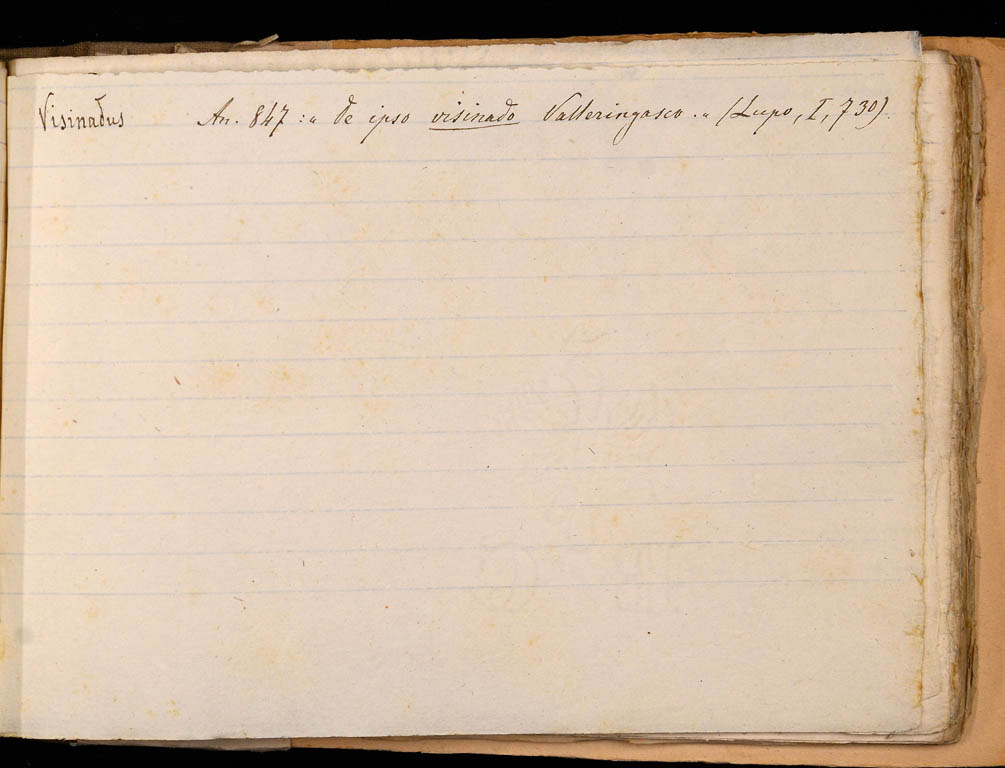 Visinadus An. 847 : „ De ipso visinado Valteringasco . „ (Lupo, I, 730).